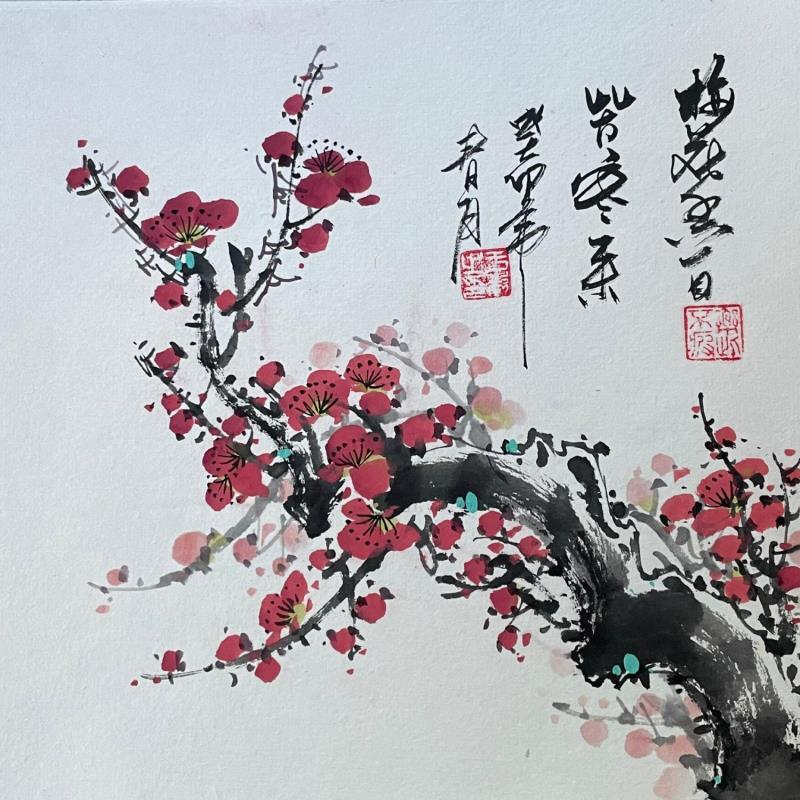 梅花香自
苦寒来
癸卯年
春月